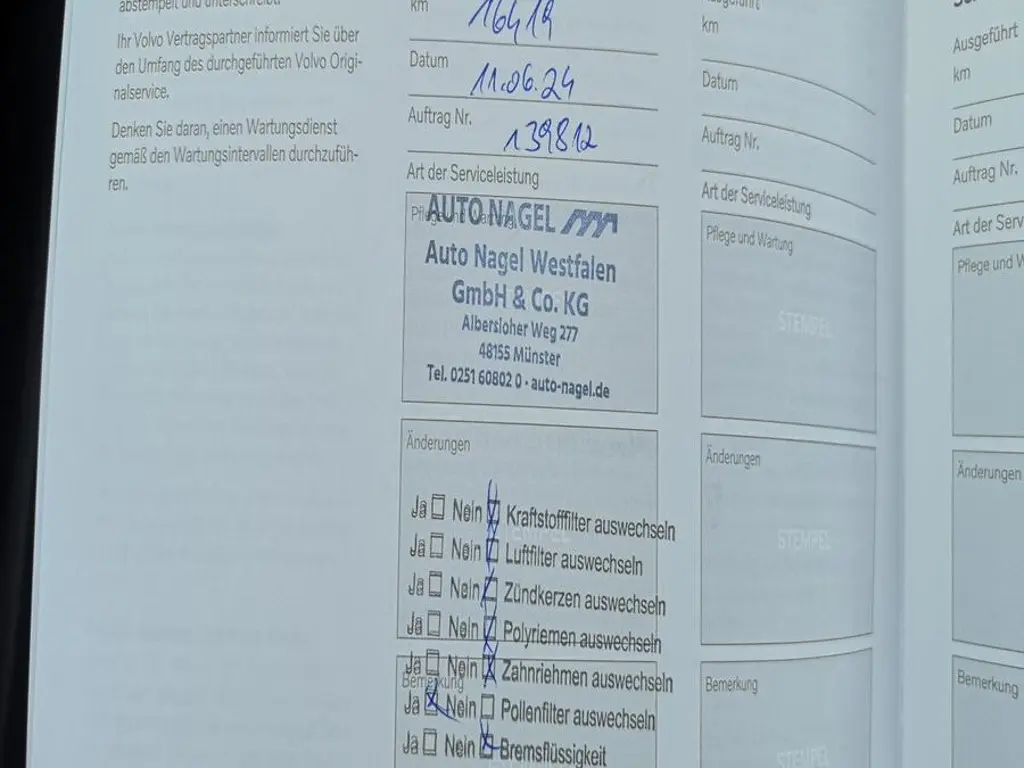 abstempelt und unterschreibt.
Ihr Volvo Vertragspartner informiert Sie über
den Umfang des durchgeführten Volvo Origi-
nalservice.
Denken Sie daran, einen Wartungsdienst
gemäß den Wartungsintervallen durchzufüh-
ren.
km 16419
Datum 11.06.24
Auftrag Nr. 139812
Art der Serviceleistung
Pflege und Wartung
AUTO NAGEL
Auto Nagel Westfalen
GmbH & Co. KG
Albersloher Weg 277
48155 Münster
Tel. 0251 60802 0 · auto-nagel.de
Änderungen
STEMPEL
Ja Nein Kraftstofffilter auswechseln
Ja Nein Luftfilter auswechseln
Ja Nein Zündkerzen auswechseln
Ja Nein Polyriemen auswechseln
Ja Nein Zahnriehmen auswechseln
Bemerkung
Ja Nein Pollenfilter auswechseln
Ja Nein Bremsflüssigkeit
km
Datum
Auftrag Nr.
Art der Serviceleistung
Pflege und Wartung
STEMPEL
Änderungen
STEMPEL
Bemerkung
STEMPEL
Ausgeführt
km
Datum
Auftrag Nr.
Art der Serv
Pflege und W
Änderungen
Bemerkung